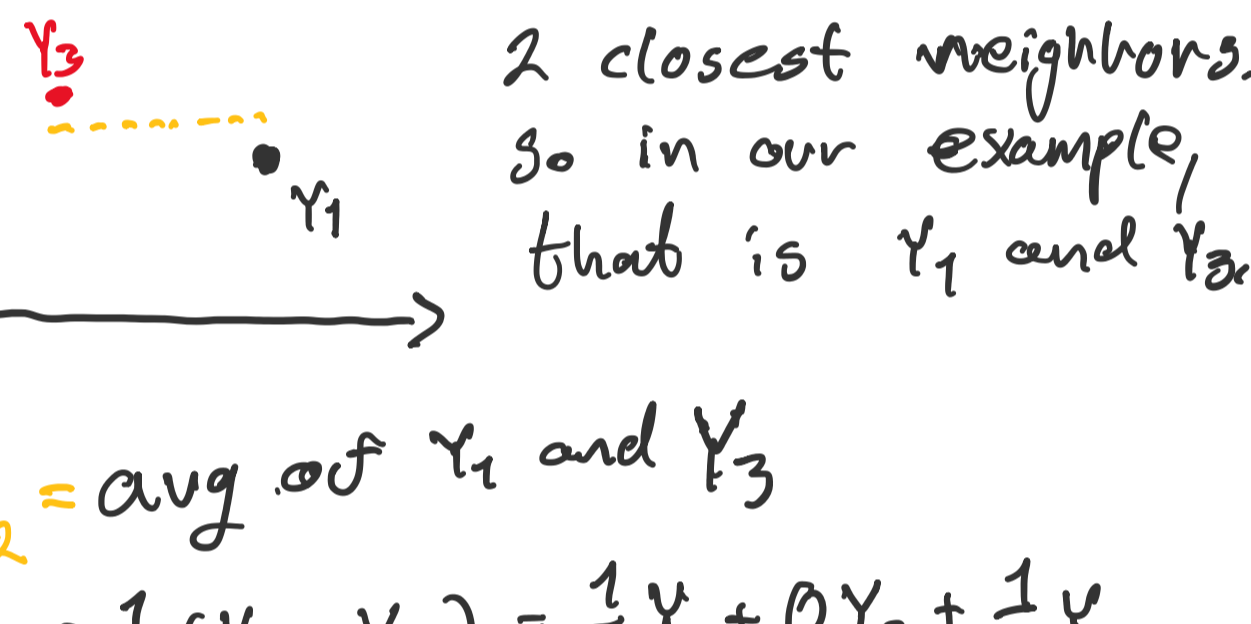 Y3
2 closest neighbors.
So in our example,
Y1
that is Y1 and Y3.
= avg of Y1 and Y3
2